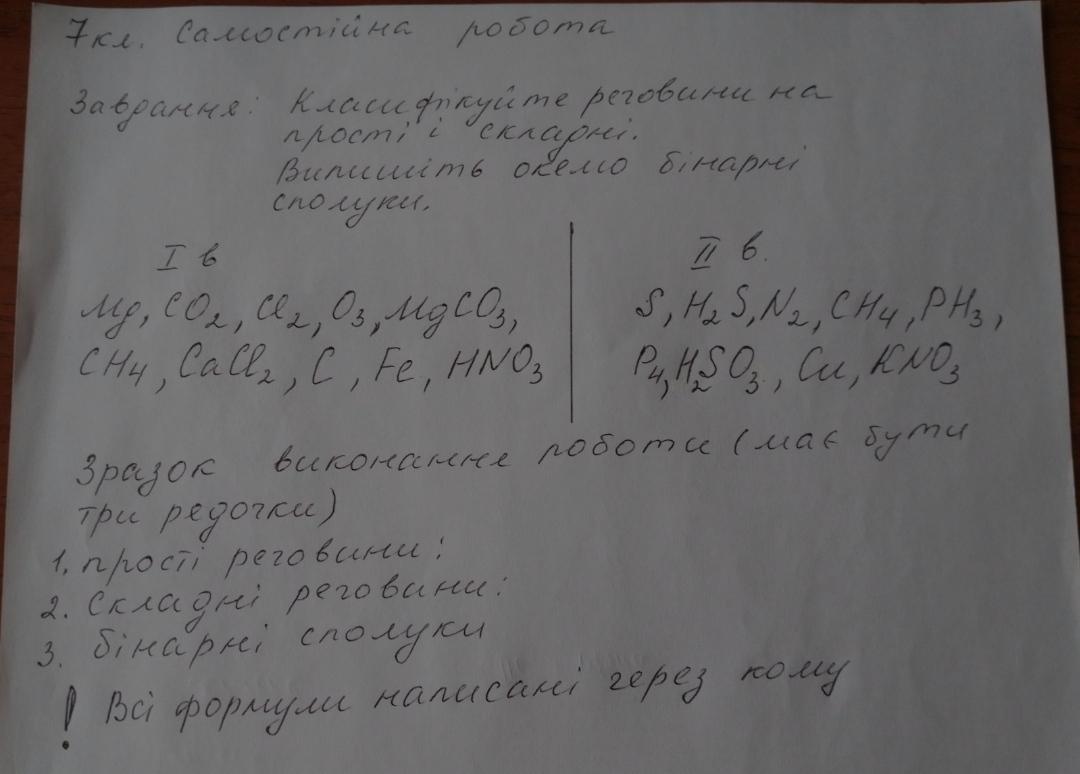 7кл. Самостійна робота
Завдання: Класифікуйте речовини на
прості і складні.
Випишіть окемо бінарні
сполуки.
I в
Mg, CO2, Cl2, O3, MgCO3,
CH4, CaCl2, C, Fe, HNO3
II в.
S, H2S, N2, CH4, PH3,
P4, H2SO3, Cu, KNO3
Зразок виконання роботи (має бути
три рядочки)
1. прості речовини:
2. Складні речовини:
3. бінарні сполуки
! Всі формули написані через кому